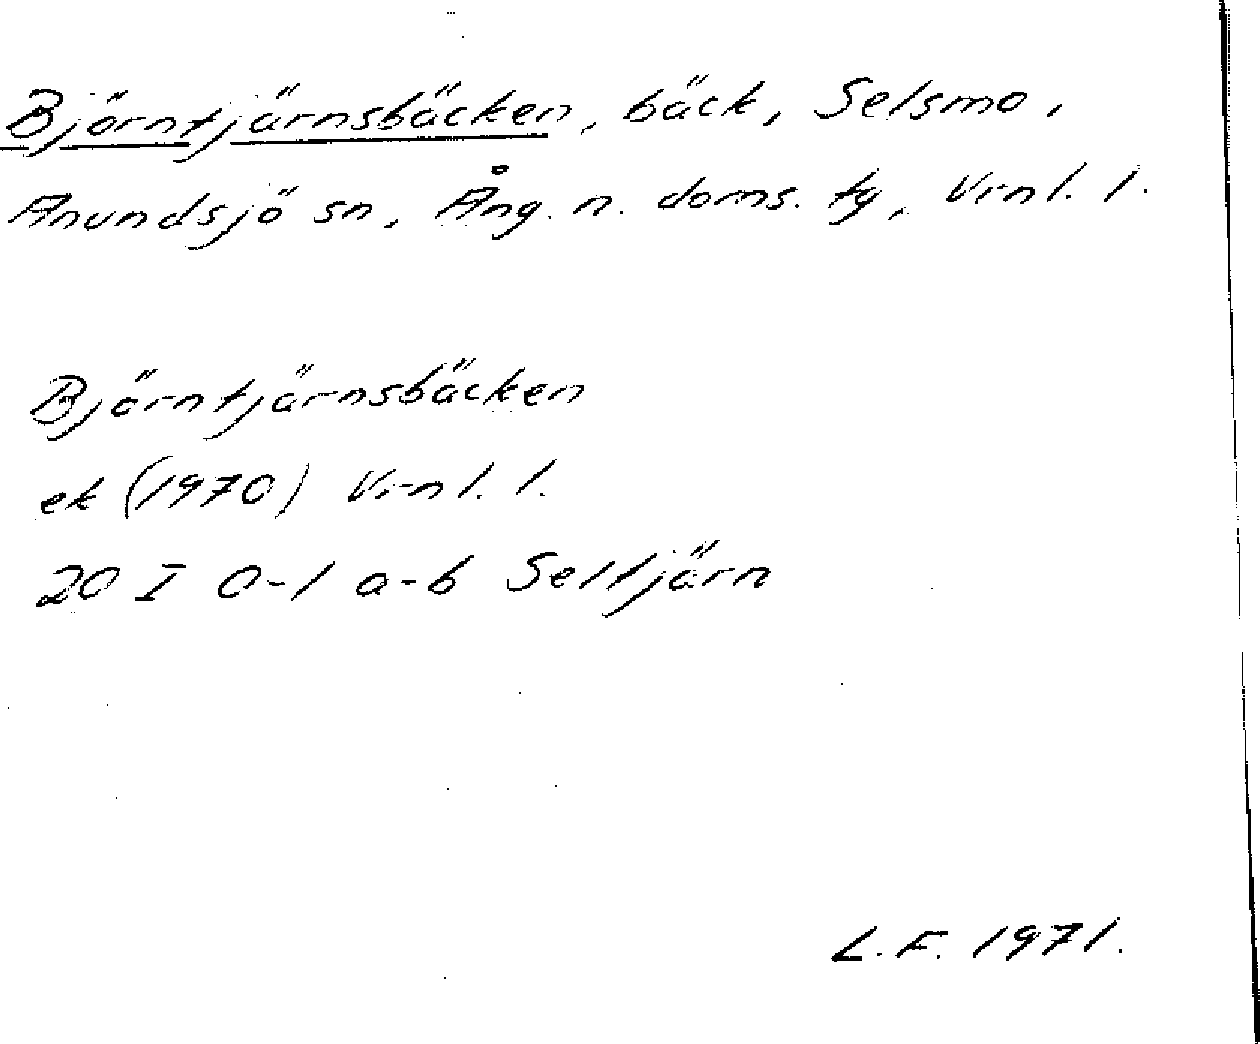 Björntjärnsbäcken, bäck, Selsmo,
Anundsjö sn, Ång. n. doms. tg, Vrnl. l.
Björntjärnsbäcken
ek (1970) Vrnl. l.
20 I 0-1 a-b Seltjärn
L.F. 1971.